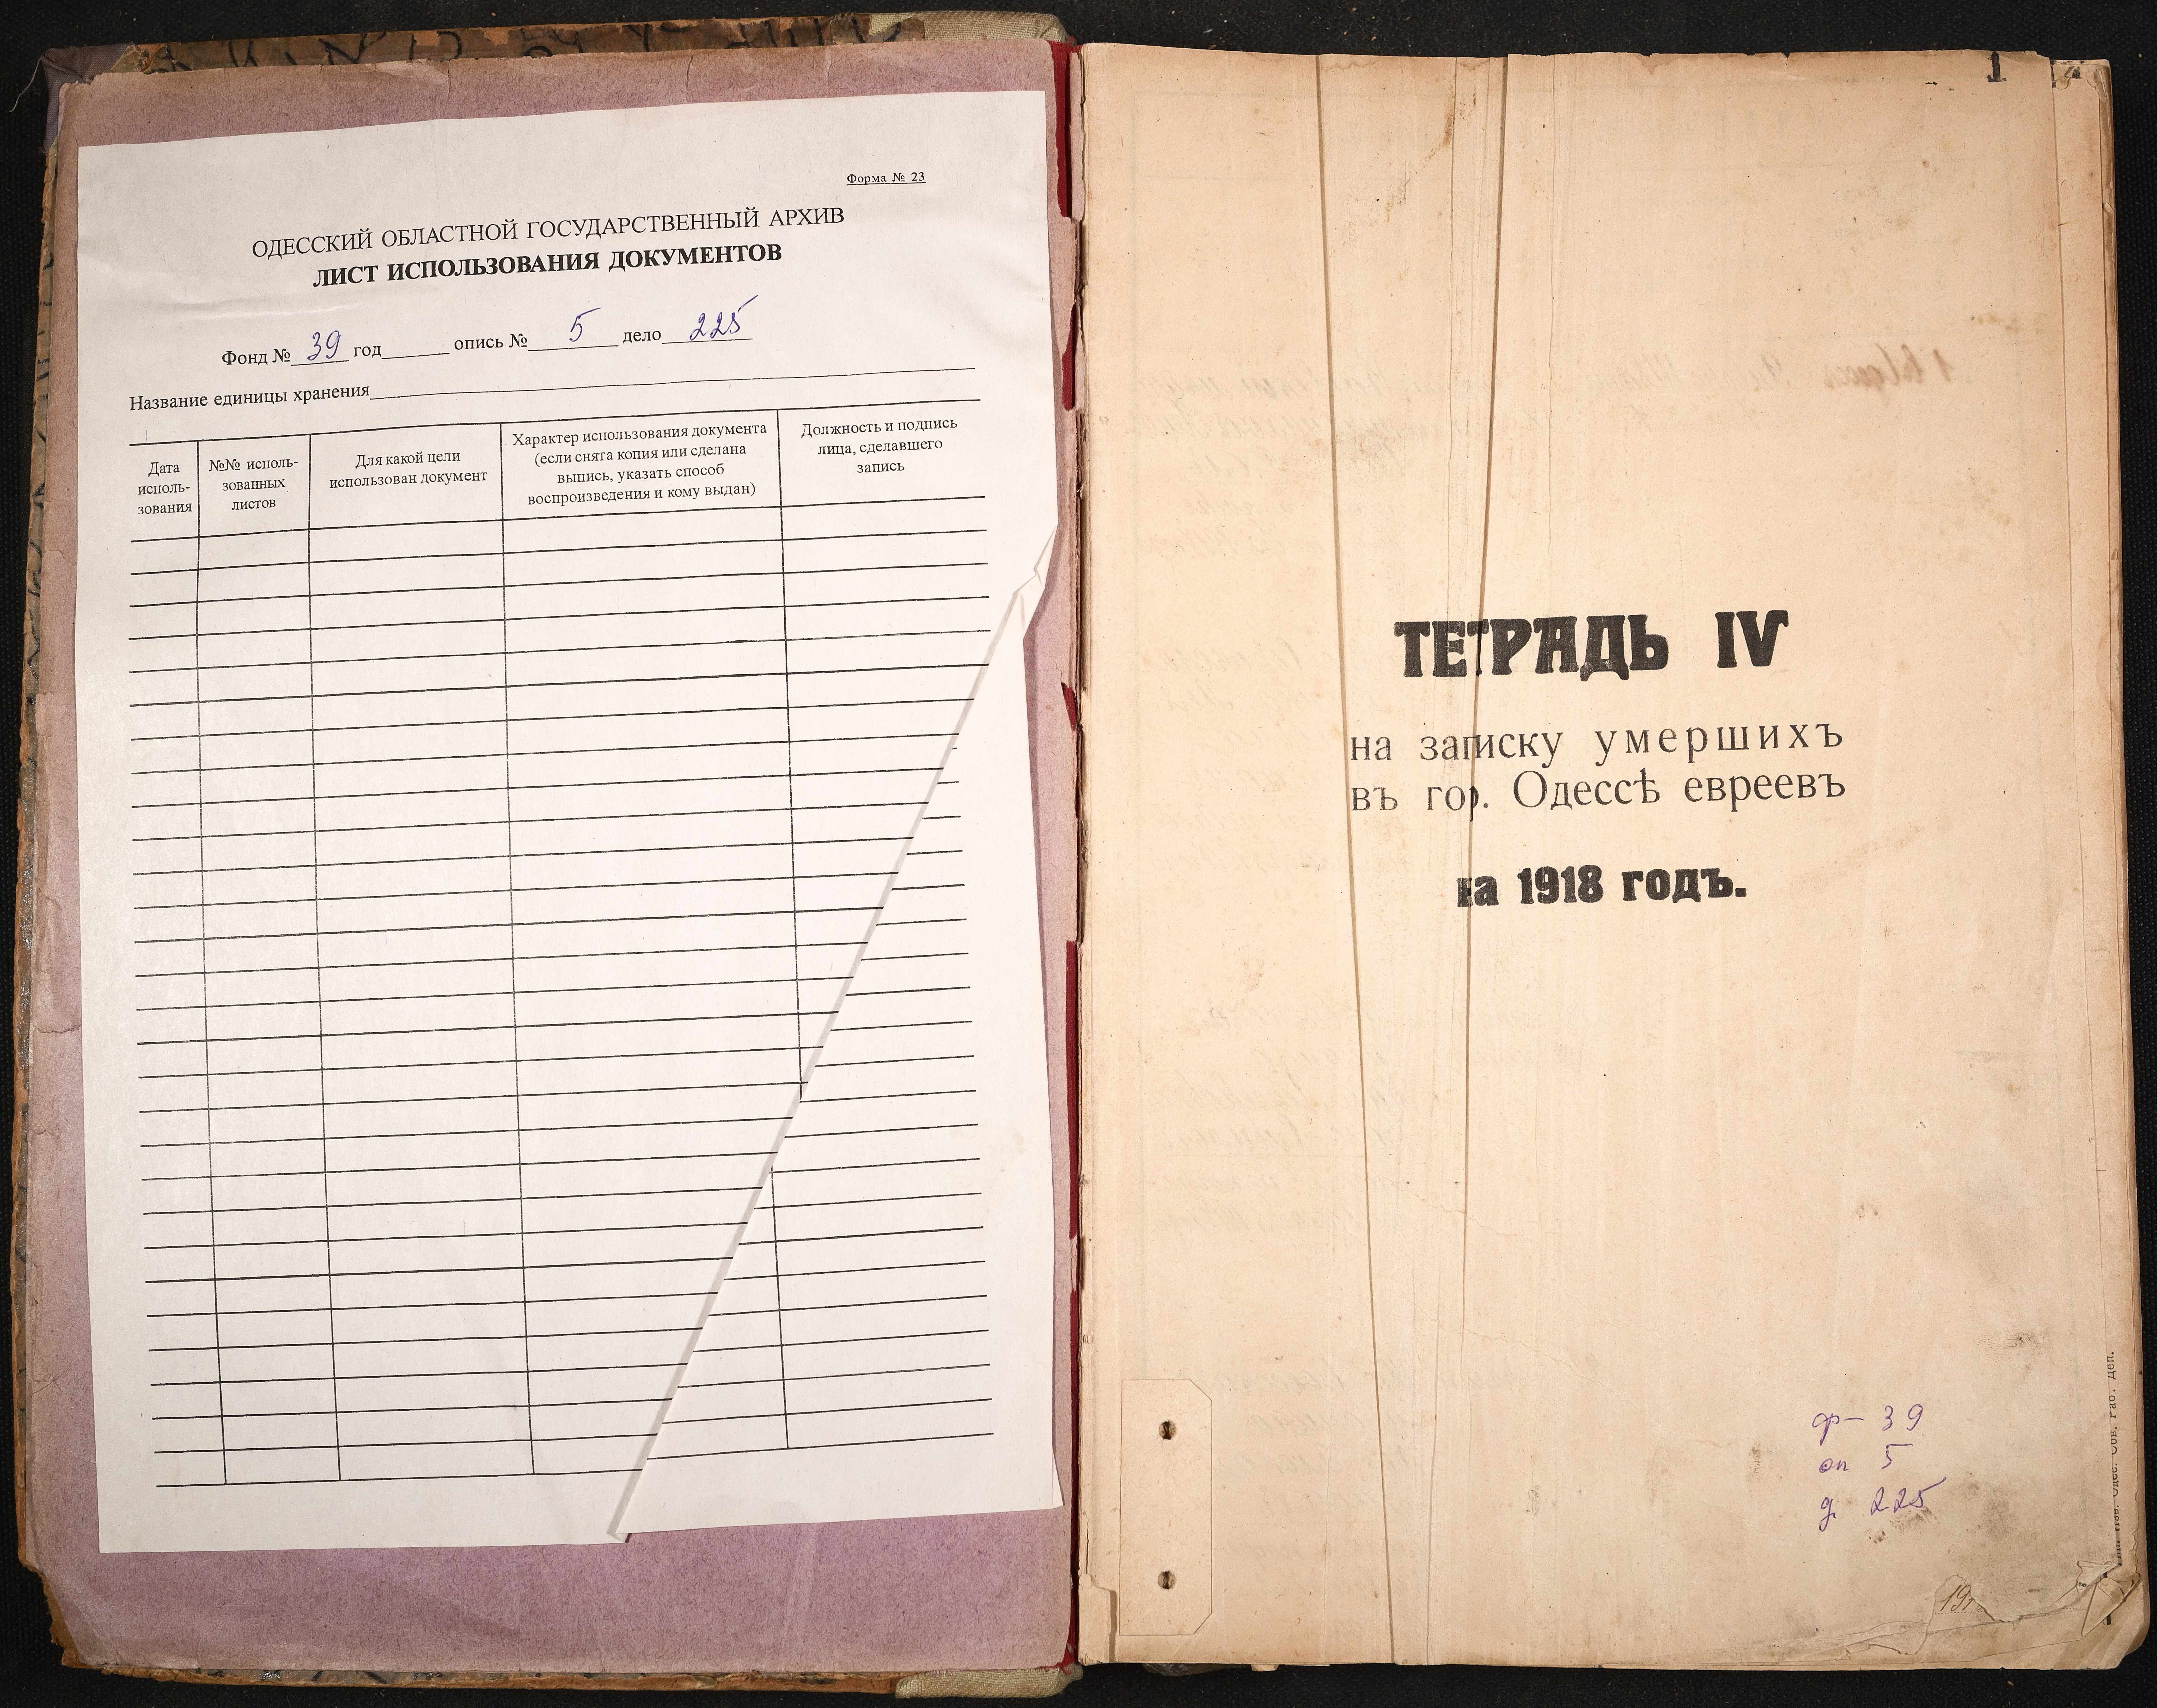 Форма № 23
ОДЕССКИЙ ОБЛАСТНОЙ ГОСУДАРСТВЕННЫЙ АРХИВ
ЛИСТ ИСПОЛЬЗОВАНИЯ ДОКУМЕНТОВ
Фонд № 39 год опись № 5 дело 225
Название единицы хранения
Дата
исполь-
зования
№№ исполь-
зованных
листов
Для какой цели
использован документ
Характер использования документа
(если снята копия или сделана
выпись, указать способ
воспроизведения и кому выдан)
Должность и подпись
лица, сделавшего
запись
1
ТЕТРАДЬ IV
на записку умершихъ
въ гор. Одессѣ евреевъ
на 1918 годъ.
ф- 39
оп 5
д 225